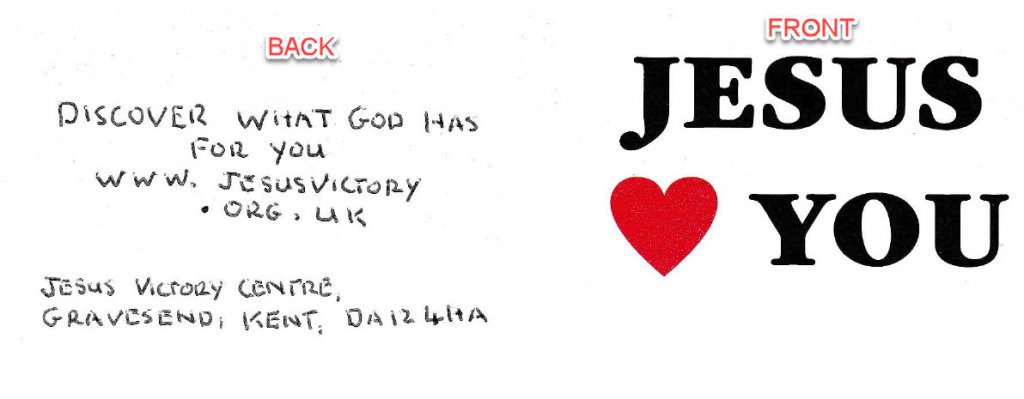 BACK
DISCOVER WHAT GOD HAS
FOR YOU
WWW. JESUSVICTORY
.ORG.UK
JESUS VICTORY CENTRE,
GRAVESEND, KENT, DA12 4HA
FRONT
JESUS
♥ YOU